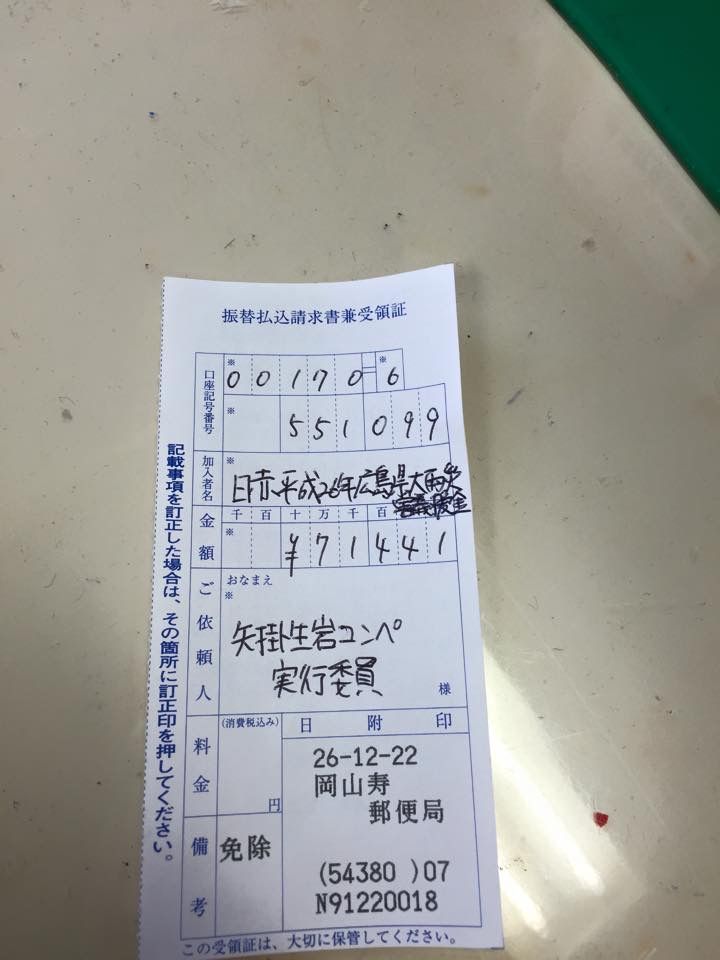 振替払込請求書兼受領証
口座記号番号
※ 00170 ※ 6
※ 551099
加入者名
※ 日赤平成26年広島県大雨災
害義援金
金額
千 百 十 万 千 百 十 円
※ ¥71441
ご依頼人
おなまえ
※
矢掛生岩コンペ
実行委員
様
料金
(消費税込み)
円
日附印
26-12-22
岡山寿
郵便局
(54380 )07
N91220018
備考
免除
記載事項を訂正した場合は、その箇所に訂正印を押してください。
この受領証は、大切に保管してください。